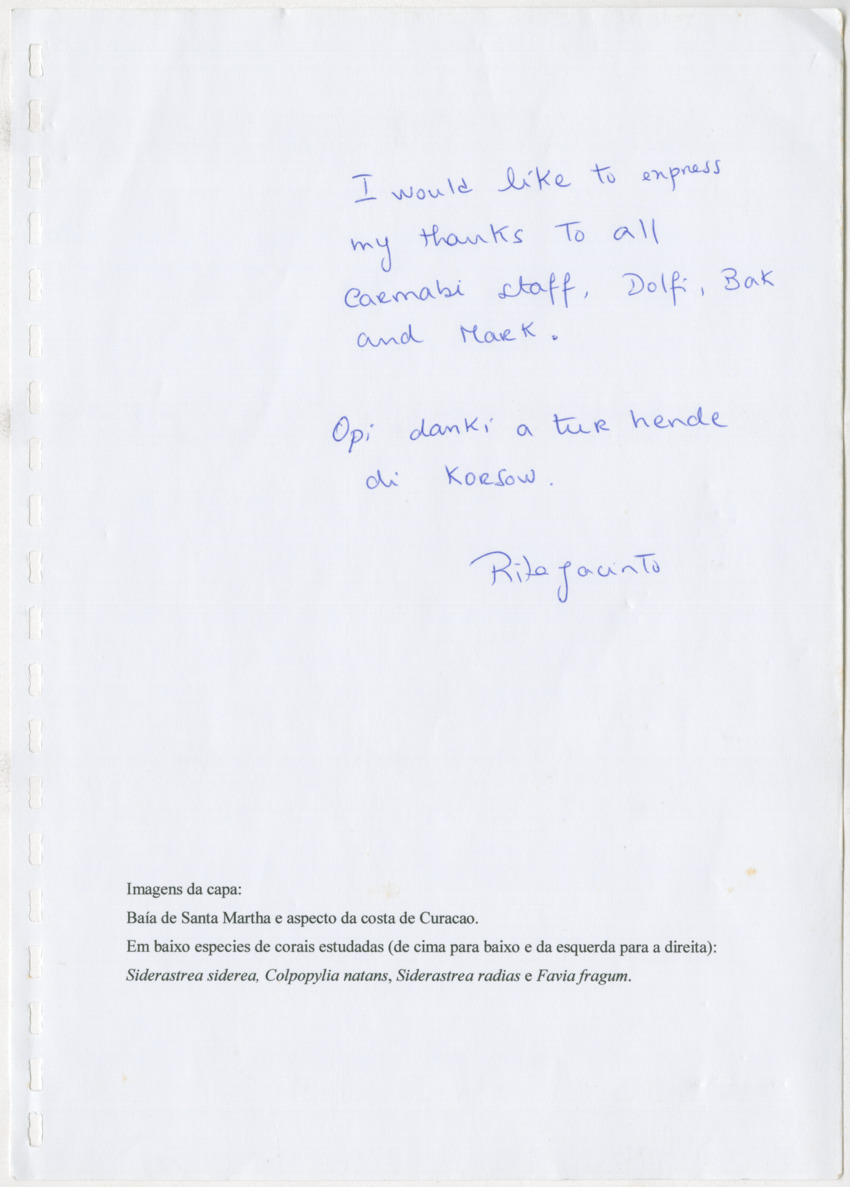 I would like to express
my thanks to all
Carmabi staff, Dolfi, Bak
and Mark.
Opi danki a tur hende
di Korsow.
Rita Jacinto
Imagens da capa:
Baía de Santa Martha e aspecto da costa de Curacao.
Em baixo especies de corais estudadas (de cima para baixo e da esquerda para a direita):
Siderastrea siderea, Colpopylia natans, Siderastrea radias e Favia fragum.